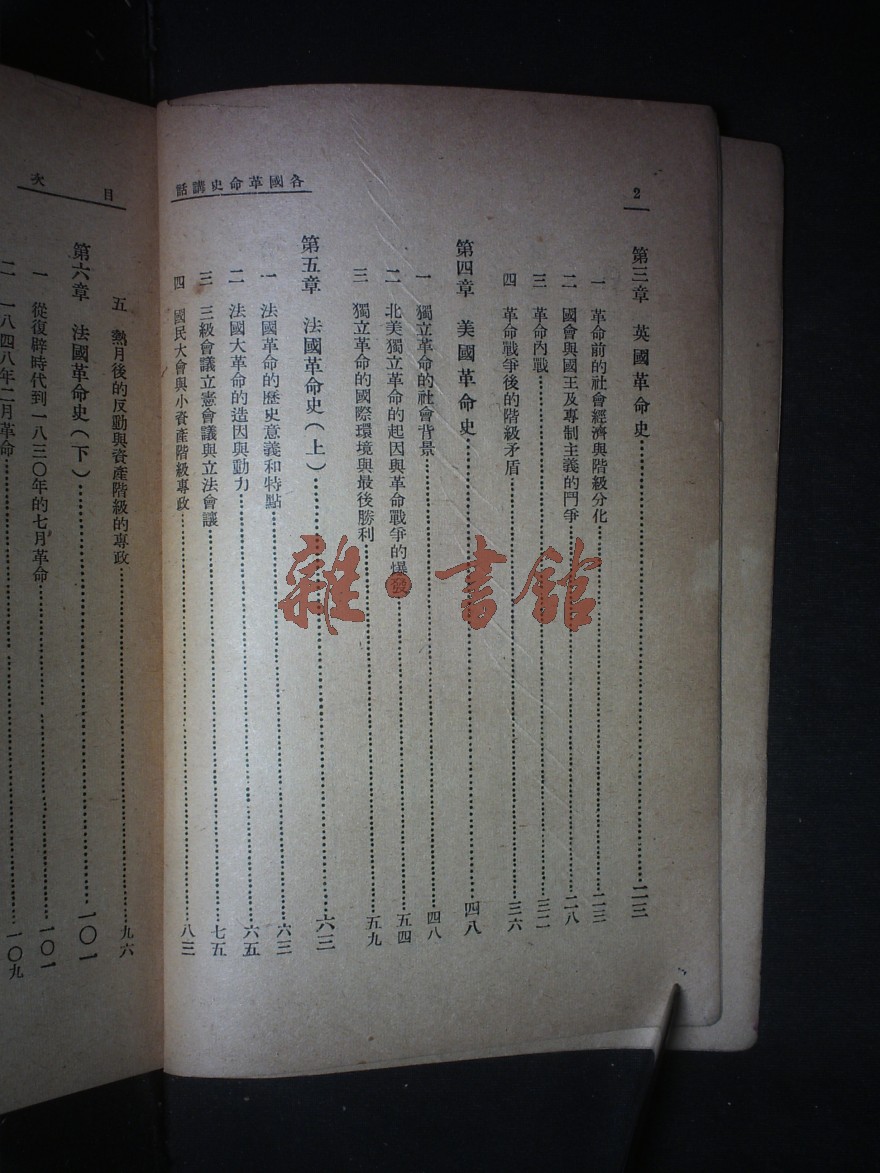 2
各國革命史講話
第三章　英國革命史……二三
一　革命前的社會經濟與階級分化……二三
二　國會與國王及專制主義的鬥爭……二八
三　革命內戰……三二
四　革命戰爭後的階級矛盾……三六
第四章　美國革命史……四八
一　獨立革命的社會背景……四八
二　北美獨立革命的起因與革命戰爭的爆發……五四
三　獨立革命的國際環境與最後勝利……五九
第五章　法國革命史（上）……六三
一　法國革命的歷史意義和特點……六三
二　法國大革命的造因與動力……六五
三　三級會議立憲會議與立法會議……七五
四　國民大會與小資產階級專政……八三
目次
五　熱月後的反動與資產階級的專政……九六
第六章　法國革命史（下）……一〇一
一　從復辟時代到一八三〇年的七月革命……一〇一
二　一八四八年二月革命……一〇九
雜·書館